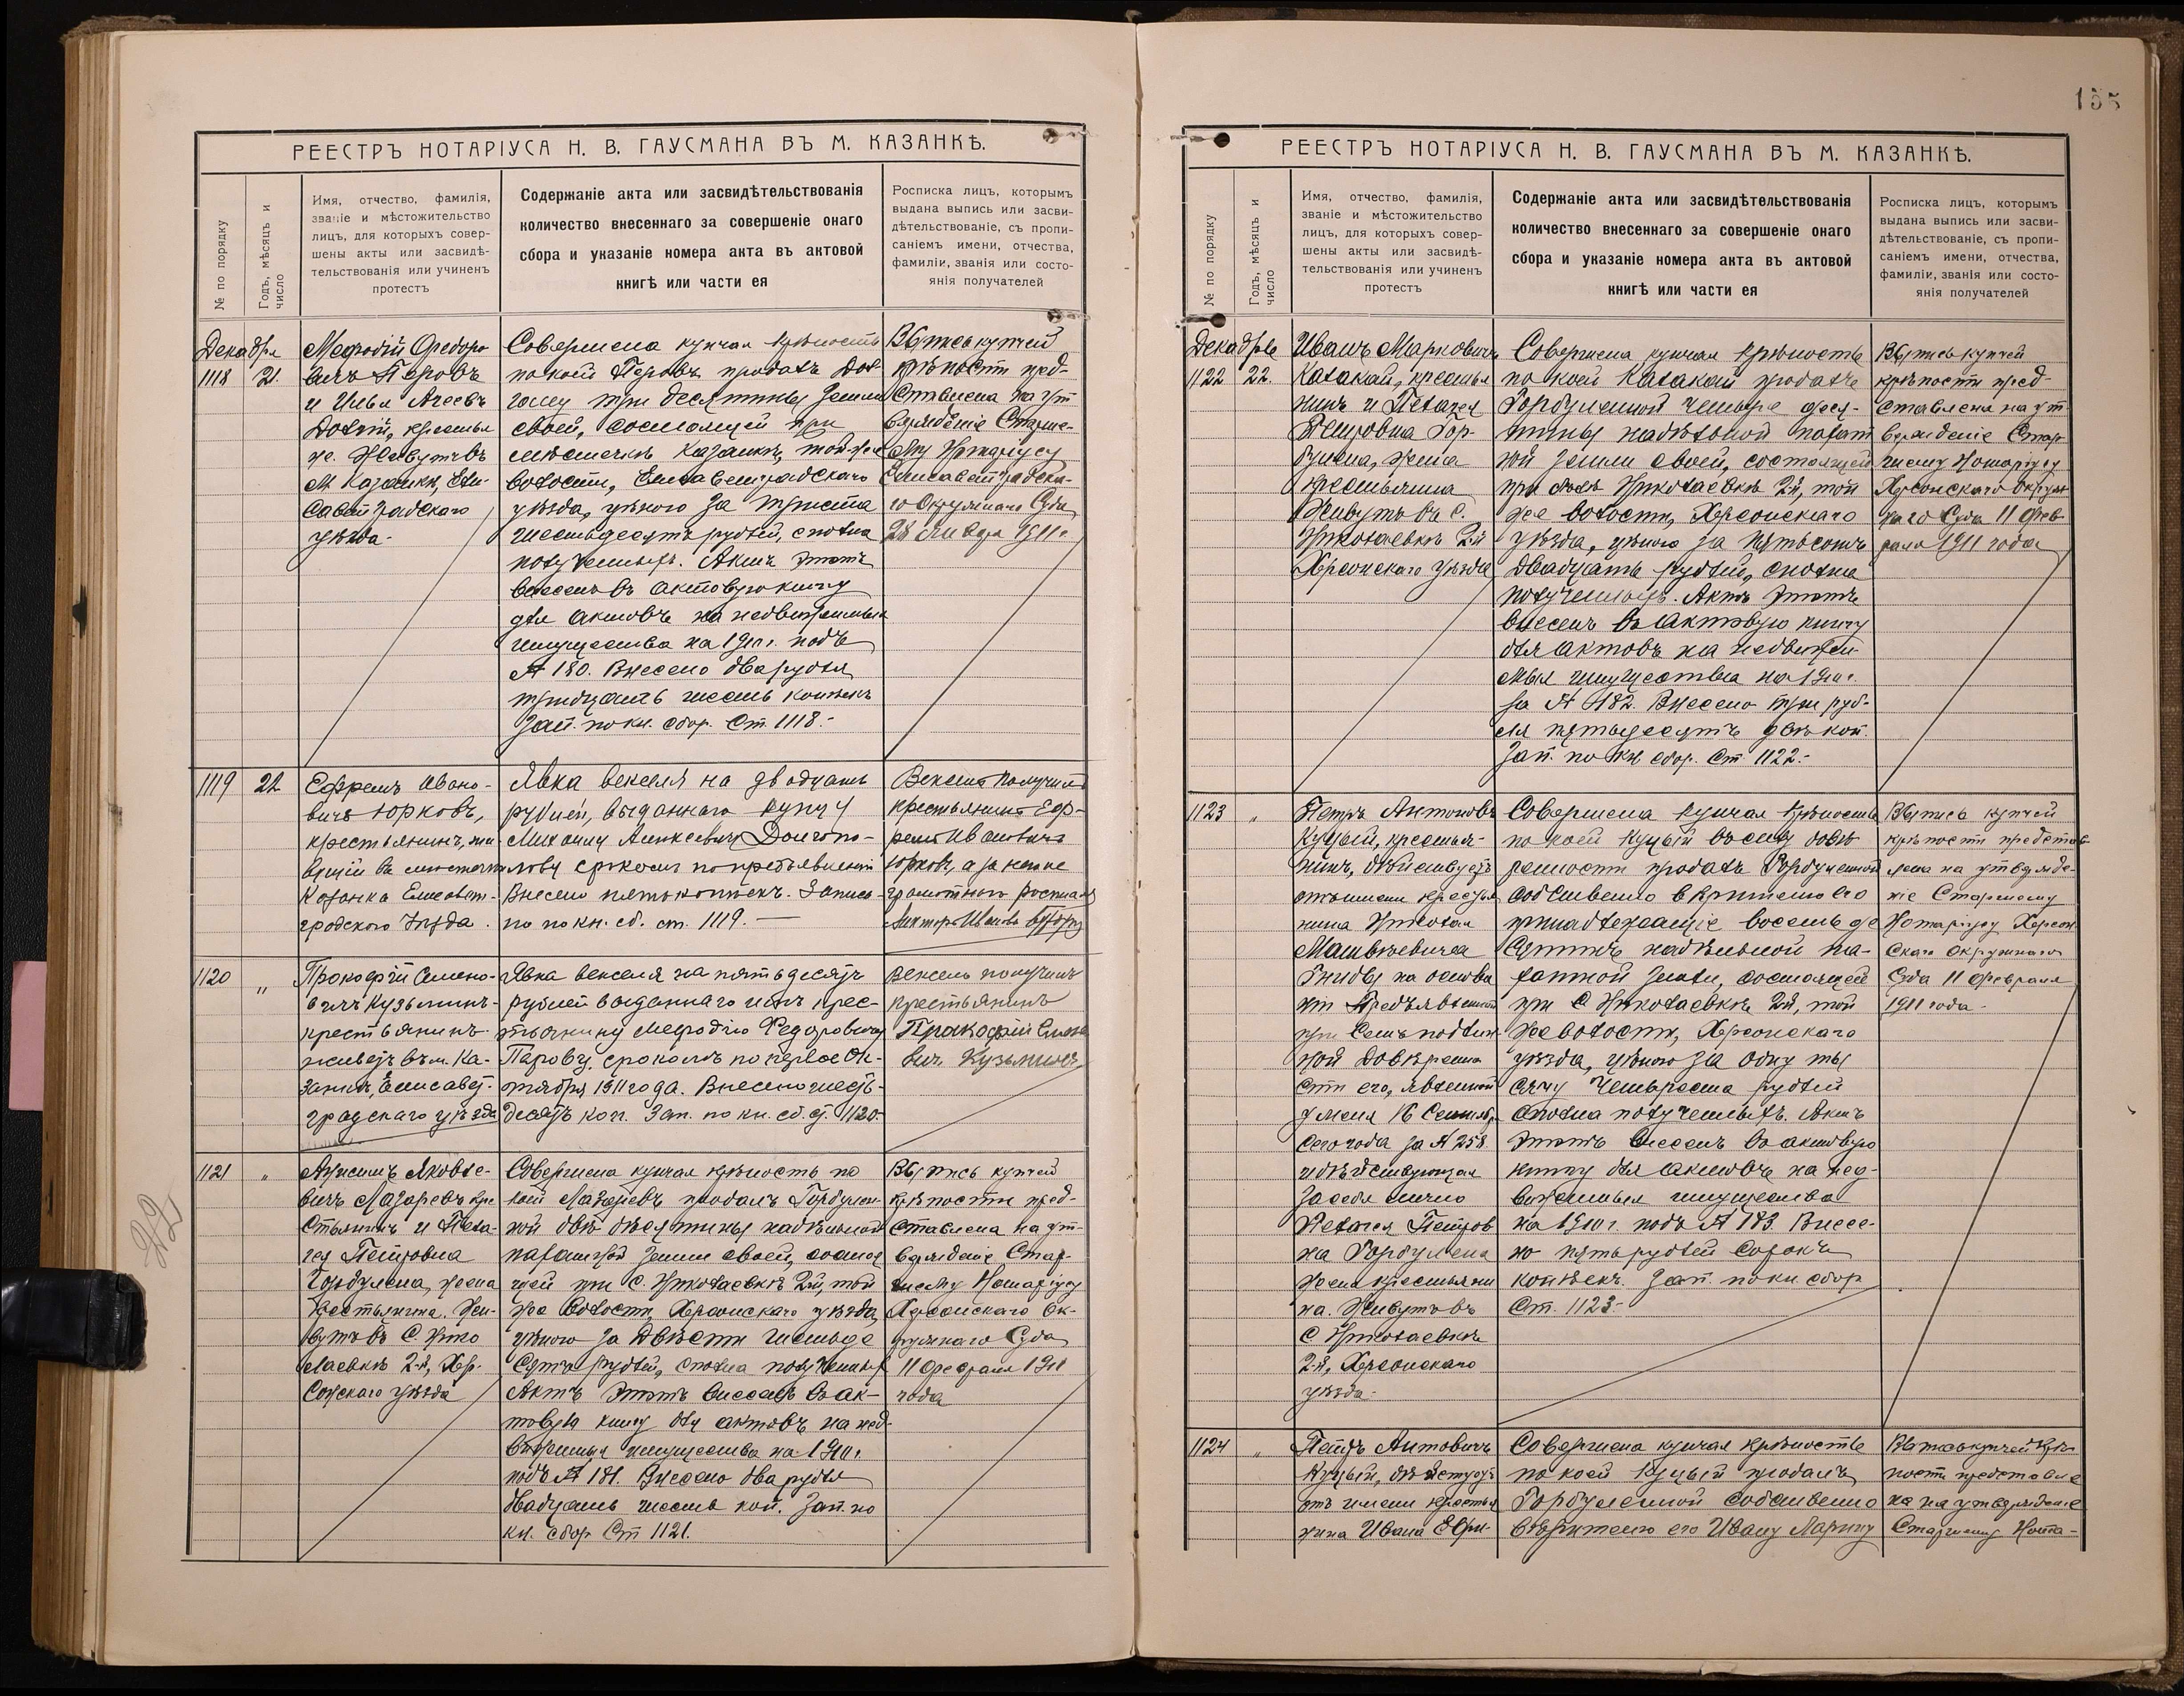 РЕЕСТРЪ НОТАРІУСА Н. В. ГАУСМАНА ВЪ М. КАЗАНКѢ.
№ по порядку
Годъ, мѣсяцъ и
число
Имя, отчество, фамилія,
званіе и мѣстожительство
лицъ, для которыхъ совер-
шены акты или засвидѣ-
тельствованія или учиненъ
протестъ
Содержаніе акта или засвидѣтельствованія
количество внесеннаго за совершеніе онаго
сбора и указаніе номера акта въ актовой
книгѣ или части ея
Росписка лицъ, которымъ
выдана выпись или засви-
дѣтельствованіе, съ пропи-
саніемъ имени, отчества,
фамиліи, званія или состо-
янія получателей
Декабря
1118 21.
Мефодій Федоро
вичъ Перовъ
и Илья Агеевъ
Довгій, крестья
не. Живутъ въ
м. Казанкѣ, Ели-
саветградскаго
уѣзда.
Совершена купчая крѣпость
по коей Перовъ продалъ Дов-
гому три десятины земли
своей, состоящей при
мѣстечкѣ Казанкѣ, той-же
волости, Елисаветградскаго
уѣзда, цѣною за триста
шестьдесятъ рублей, сполна
полученныхъ. Актъ этотъ
внесенъ въ актовую книгу
для актовъ на недвижимыя
имущества на 1910 г. подъ
№ 180. Внесено два рубля
тридцать шесть копѣекъ
Зап. по кн. сбор. Ст. 1118.-
Выпись купчей
крѣпости пред-
ставлена на ут
вержденіе Старше-
му Нотаріусу
Елисаветградска-
го Окружнаго Суда
28 Января 1911 г.
1119 22
Ефремъ Ивано-
вичъ Юрковъ,
крестьянинъ, жи
вущій въ мѣстечкѣ
Казанка Елисавет-
градского Уѣзда.
Явка векселя на двадцать
рублей, выданнаго купцу
Михаилу Алексеевичу Долгопо-
лову срокомъ по предъявленіи
Внесено пять копѣекъ. Записа-
но по кн. сб. ст. 1119.
Вексель получилъ
крестьянинъ Еф-
ремъ Ивановичъ
Юрковъ, а за него не
грамотнаго росписался
Викторъ Ивановъ
1120 „
Прокофій Семено-
вичъ Кузьминъ-
крестьянинъ
живетъ въ м. Ка-
занкѣ, Елисавет-
градскаго уѣзда
Явка векселя на пятьдесятъ
рублей выданнаго имъ крес-
тьянину Мефодію Федоровичу
Парову, срокомъ по первое Ок-
тября 1911 года. Внесено шесть-
десятъ коп. Зап. по кн. сб. ст. 1120.
Вексель получилъ
крестьянинъ
Прокофій Семено
вичъ Кузьминъ
1121 „
Анисимъ Яковле-
вичъ Лазаревъ кре
стьянинъ и Пела-
гея Петровна
Горбулена, жена
крестьянина. Жи-
вутъ въ с. Нико
лаевкѣ 2-й, Хер-
сонскаго уѣзда
Совершена купчая крѣпость по
коей Лазаревъ продалъ Горбулен-
ной двѣ десятины надѣльной
пахатной земли своей, состоя
щей при с. Николаевкѣ 2-й, той
же волости, Херсонскаго уѣзда,
цѣною за двѣсти шестьде
сятъ рублей, сполна полученныхъ
Актъ этотъ внесенъ въ ак-
товую книгу для актовъ на нед-
вижимыя имущества на 1910 г.
подъ № 181. Внесено два рубля
двадцать шесть коп. Зап. по
кн. сбор. Ст 1121.
Выпись купчей
крѣпости пред-
ставлена на ут-
вержденіе Стар-
шему Нотаріусу
Херсонскаго Ок-
ружнаго Суда
11 Февраля 1911
года
22
155
РЕЕСТРЪ НОТАРІУСА Н. В. ГАУСМАНА ВЪ М. КАЗАНКѢ.
№ по порядку
Годъ, мѣсяцъ и
число
Имя, отчество, фамилія,
званіе и мѣстожительство
лицъ, для которыхъ совер-
шены акты или засвидѣ-
тельствованія или учиненъ
протестъ
Содержаніе акта или засвидѣтельствованія
количество внесеннаго за совершеніе онаго
сбора и указаніе номера акта въ актовой
книгѣ или части ея
Росписка лицъ, которымъ
выдана выпись или засви-
дѣтельствованіе, съ пропи-
саніемъ имени, отчества,
фамиліи, званія или состо-
янія получателей
Декабрь
1122 22.
Иванъ Марковичъ
Катакай, крестья
нинъ и Пелагея
Петровна Гор-
булена, жена
крестьянина
Живутъ въ с.
Николаевкѣ 2-й
Херсонскаго уѣзда
Совершена купчая крѣпость
по коей Катакай продалъ
Горбуленной четыре деся-
тины надѣльной пахат
ной земли своей, состоящей
при селѣ Николаевкѣ 2-й, той
же волости, Херсонскаго
уѣзда, цѣною за пятьсотъ
двадцать рублей, сполна
полученныхъ. Актъ этотъ
внесенъ въ актовую книгу
для актовъ на недвижи-
мыя имущества на 1910 г.
за № 182. Внесено три руб-
ля пятьдесятъ двѣ коп.
Зап. по кн сбор. Ст 1122.-
Выпись купчей
крѣпости пред-
ставлена на ут-
вержденіе Стар
шему Нотаріусу
Херсонскаго Окруж
наго Суда 11 Фев-
раля 1911 года
1123 „
Петръ Антоновъ
Куцый, крестья-
нинъ, дѣйствуетъ
отъ имени крестья
нина Николая
Матвѣевича
Гниды на основа
ніи предъявленной
при семъ подлин-
ной довѣренно
сти его, явленной
у меня 16 Сентября
сего года за № 258.
и дѣйствующая
за себя лично
Пелагея Петров
на Горбулена
жена крестьяни
на. Живутъ въ
с. Николаевкѣ
2-й, Херсонскаго
уѣзда.-
Совершена купчая крѣпость
по коей Куцый въ силу довѣ-
ренности продалъ Горбуленной
собственно вѣрителю его
принадлежащіе восемь де
сятинъ надѣльной па-
хатной земли, состоящей
при с. Николаевкѣ 2-й, той
же волости, Херсонскаго
уѣзда, цѣною за одну ты
сячу четыреста рублей
сполна полученныхъ. Актъ
этотъ внесенъ въ актовую
книгу для актовъ на нед-
вижимыя имущества
на 1910 г. подъ № 183. Внесе-
но пять рублей сорокъ
копѣекъ. Зап. по кн. сбор
Ст. 1123.-
Выпись купчей
крѣпости представ
лена на утвержде-
ніе Старшему
Нотаріусу Херсон
скаго Окружнаго
Суда 11 Февраля
1911 года.
1124 „
Петръ Антоновичъ
Куцый, дѣйствуетъ
отъ имени крестья
нина Ивана Ефи-
Совершена купчая крѣпость
по коей Куцый продалъ
Горбуленной собственно
вѣрителю его Ивану Ларину
Выпись купчей крѣ-
пости представле
на на утвержденіе
Старшему Нота-